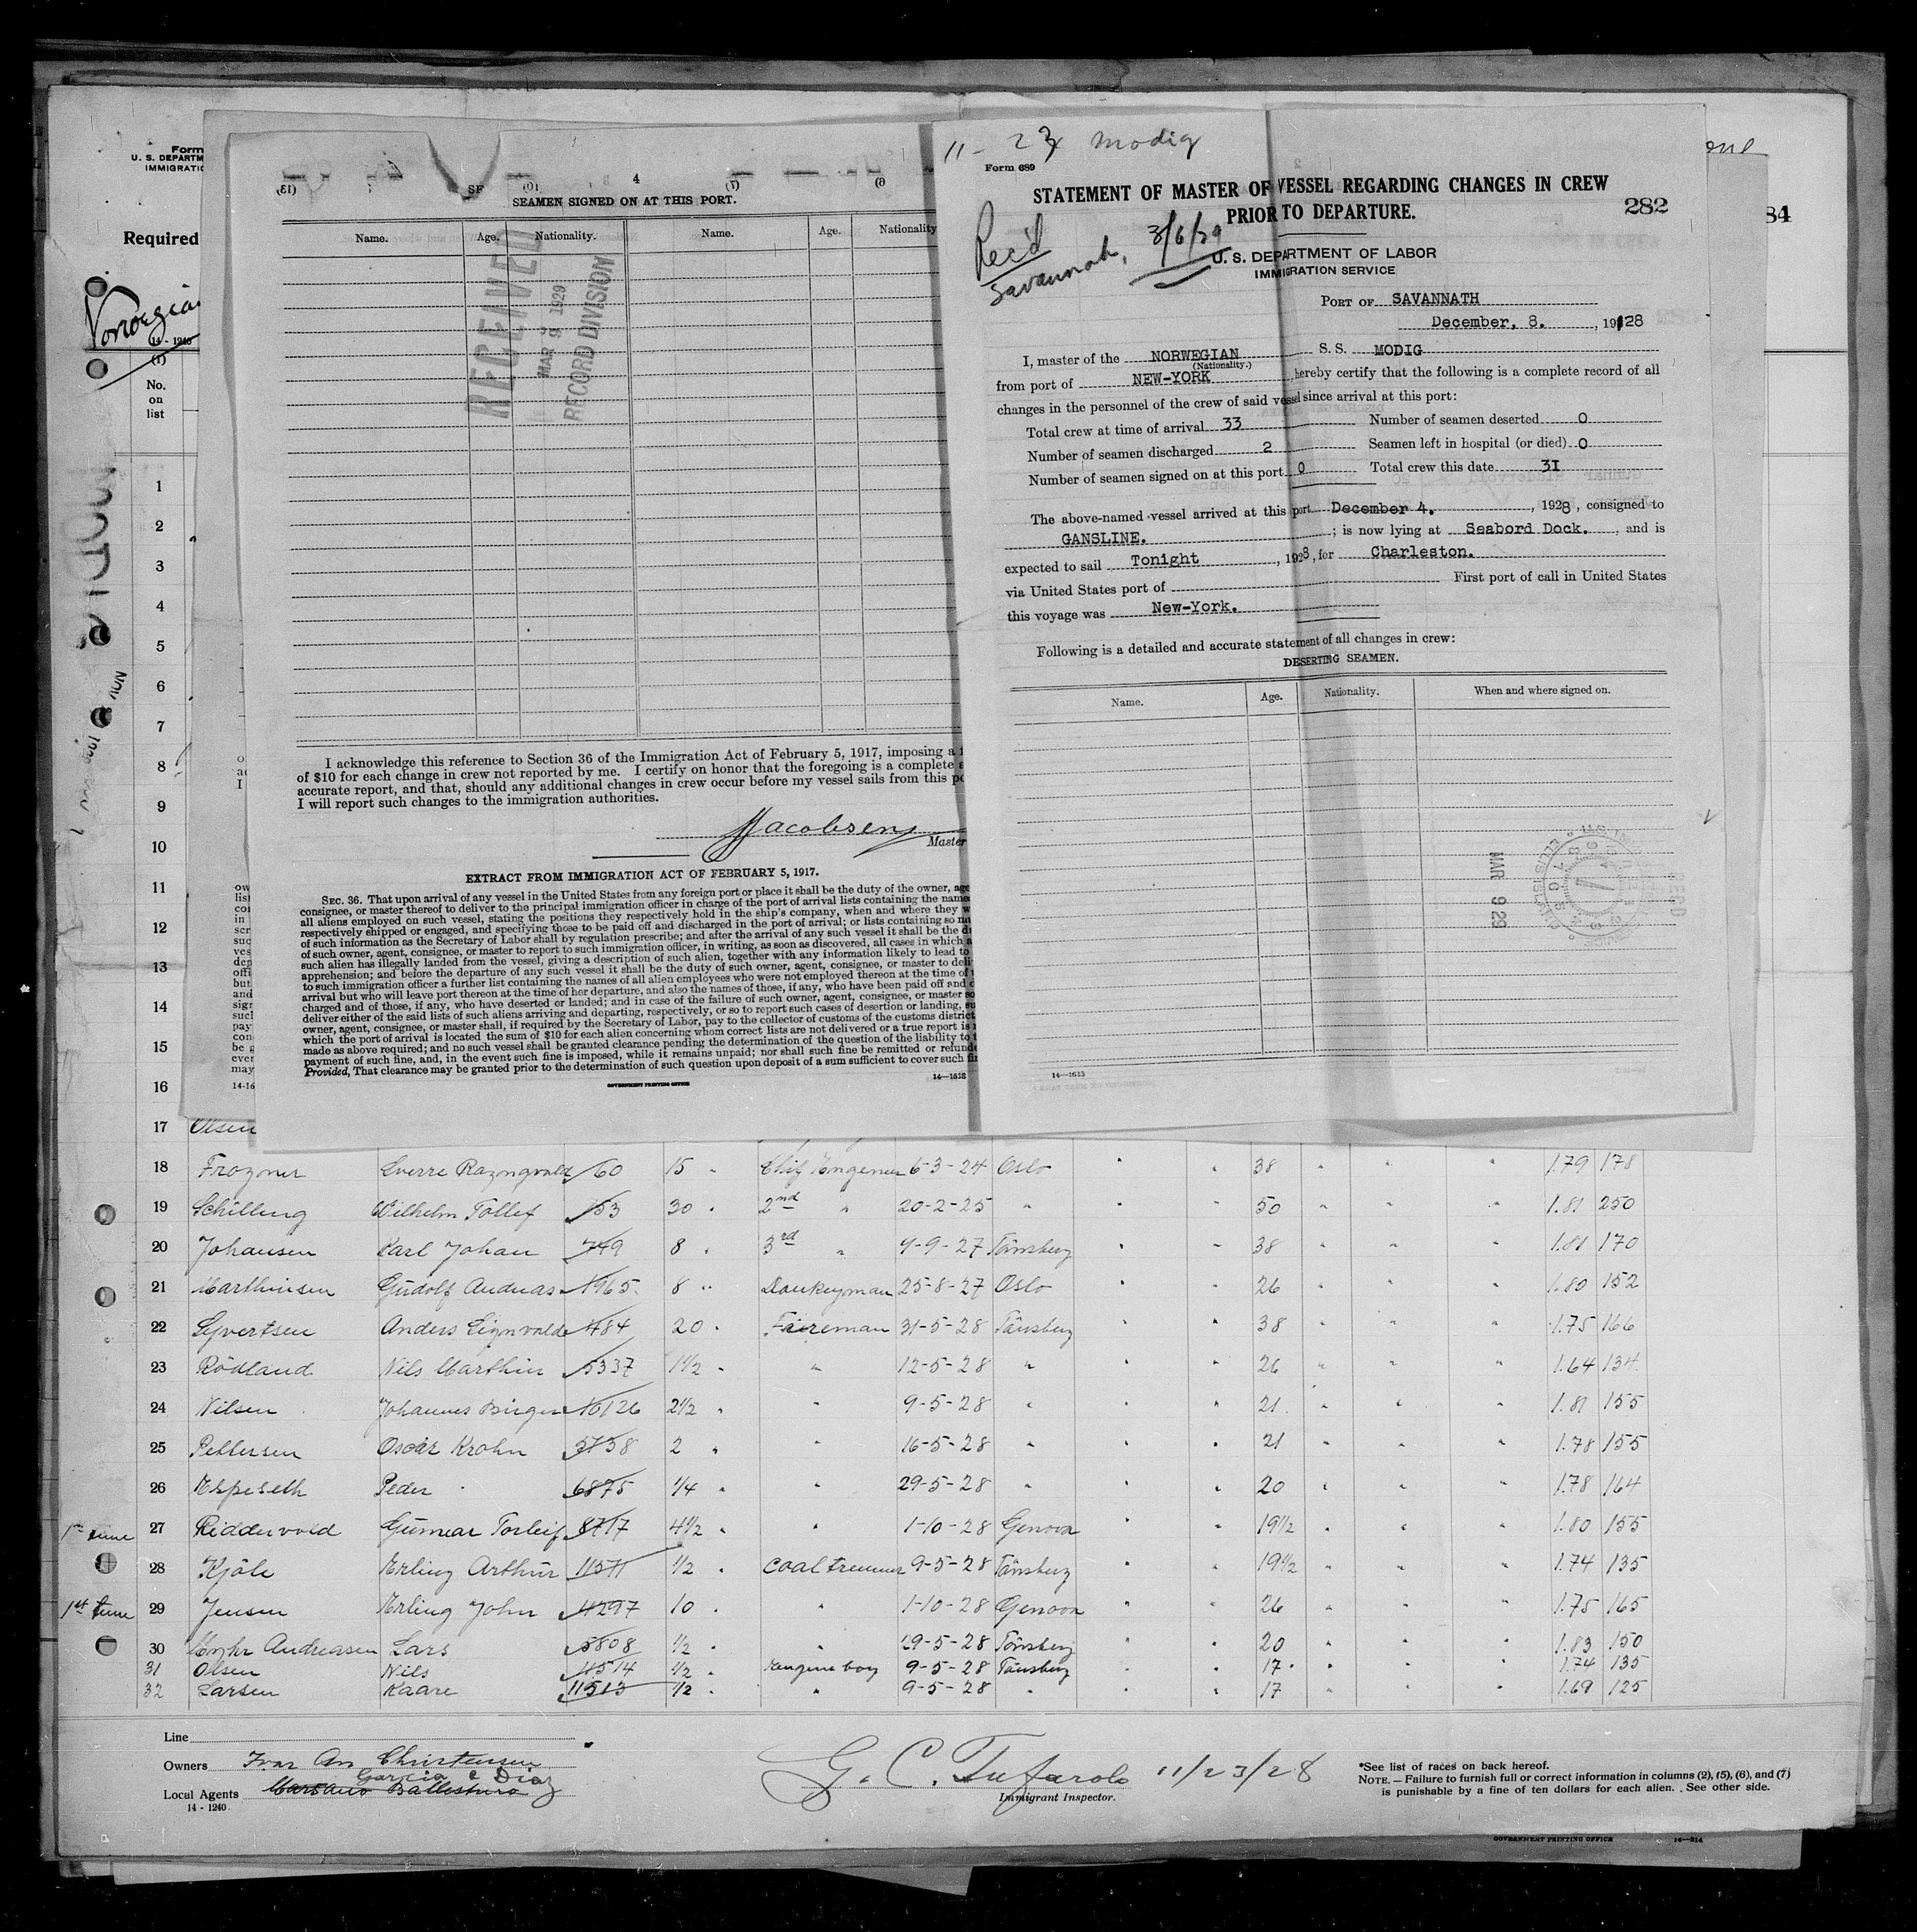 Form
U. S. DEPARTM
IMMIGRATIO
Required
Norwegian
14 - 1240
(1)
No.
on
list
1
2
3
4
5
6
7
8
9
10
11
12
13
14
15
16
4
SEAMEN SIGNED ON AT THIS PORT.
Name. Age. Nationality. Name. Age. Nationality
RECEIVED
MAR 9 1929
RECORD DIVISION
I acknowledge this reference to Section 36 of the Immigration Act of February 5, 1917, imposing a f
of $10 for each change in crew not reported by me. I certify on honor that the foregoing is a complete a
accurate report, and that, should any additional changes in crew occur before my vessel sails from this po
I will report such changes to the immigration authorities.
Jacobsen
Master
EXTRACT FROM IMMIGRATION ACT OF FEBRUARY 5, 1917.
SEC. 36. That upon arrival of any vessel in the United States from any foreign port or place it shall be the duty of the owner, age
consignee, or master thereof to deliver to the principal immigration officer in charge of the port of arrival lists containing the name
all aliens employed on such vessel, stating the positions they respectively hold in the ship's company, when and where they w
respectively shipped or engaged, and specifying those to be paid off and discharged in the port of arrival; or lists containing so m
of such information as the Secretary of Labor shall by regulation prescribe; and after the arrival of any such vessel it shall be the d
of such owner, agent, consignee, or master to report to such immigration officer, in writing, as soon as discovered, all cases in which a
such alien has illegally landed from the vessel, giving a description of such alien, together with any information likely to lead to
apprehension; and before the departure of any such vessel it shall be the duty of such owner, agent, consignee, or master to deli
to such immigration officer a further list containing the names of all alien employees who were not employed thereon at the time of
arrival but who will leave port thereon at the time of her departure, and also the names of those, if any, who have been paid off and d
charged and of those, if any, who have deserted or landed; and in case of the failure of such owner, agent, consignee, or master so
deliver either of the said lists of such aliens arriving and departing, respectively, or so to report such cases of desertion or landing, su
owner, agent, consignee, or master shall, if required by the Secretary of Labor, pay to the collector of customs of the customs district
which the port of arrival is located the sum of $10 for each alien concerning whom correct lists are not delivered or a true report is n
made as above required; and no such vessel shall be granted clearance pending the determination of the question of the liability to t
payment of such fine, and, in the event such fine is imposed, while it remains unpaid; nor shall such fine be remitted or refunde
Provided, That clearance may be granted prior to the determination of such question upon deposit of a sum sufficient to cover such fin
GOVERNMENT PRINTING OFFICE 14—1613
11 - 23 Modig
Form 689
STATEMENT OF MASTER OF VESSEL REGARDING CHANGES IN CREW
PRIOR TO DEPARTURE.
282
84
Rec'd
Savannah, 3/6/29
U. S. DEPARTMENT OF LABOR
IMMIGRATION SERVICE
PORT OF SAVANNATH
December, 8. , 1928
I, master of the NORWEGIAN S. S. MODIG
(Nationality.)
from port of NEW-YORK , hereby certify that the following is a complete record of all
changes in the personnel of the crew of said vessel since arrival at this port:
Total crew at time of arrival 33 Number of seamen deserted 0
Number of seamen discharged 2 Seamen left in hospital (or died) 0
Number of seamen signed on at this port 0 Total crew this date 31
The above-named vessel arrived at this port December 4. , 1928 , consigned to
GANSLINE. ; is now lying at Seabord Dock. , and is
expected to sail Tonight , 1928 , for Charleston.
via United States port of First port of call in United States
this voyage was New-York.
Following is a detailed and accurate statement of all changes in crew:
DESERTING SEAMEN.
Name. Age. Nationality. When and where signed on.
MAR 9 29
14—1613
17 Olsen
18 Frozner Sverre Razngvald 60 15 " Chif Engeneer 6-3-24 Oslo " " 38 " " " 1.79 178
19 Schilling Wilhelm Tollef 153 30 " 2nd " 20-2-25 " " " 50 " " " 1.81 250
20 Johansen Karl Johan 749 8 " 3rd " 9-9-27 Tönsberg " " 38 " " " 1.81 170
21 Marthinsen Gudolf Andreas 1965 8 " Donkeyman 25-8-27 Oslo " " 26 " " " 1.80 152
22 Syvertsen Anders Signvald 484 20 " Faireman 31-5-28 Tönsberg " " 38 " " " 1.75 166
23 Rödland Nils Marthin 5337 1 1/2 " " 12-5-28 " " " 26 " " " 1.64 134
24 Nilsen Johannes Birger 16126 2 1/2 " " 9-5-28 " " " 21 " " " 1.81 155
25 Pettersen Oscar Krohn 3738 2 " " 16-5-28 " " " 21 " " " 1.78 155
26 Espeseth Peder 6875 1/4 " " 29-5-28 " " " 20 " " " 1.78 164
1st time 27 Riddervold Gunnar Torleif 8717 4 1/2 " " 1-10-28 Genova " " 19 1/2 " " " 1.80 155
28 Kjöle Erling Arthur 11511 1/2 " Coal tremmer 9-5-28 Tönsberg " " 19 1/2 " " " 1.74 135
1st time 29 Jensen Erling John 4297 10 " " 1-10-28 Genova " " 26 " " " 1.75 165
30 Myhr Andreasen Lars 5808 1/2 " " 29-5-28 Tönsberg " " 20 " " " 1.83 150
31 Olsen Nils 11514 1/2 " Engine boy 9-5-28 Tönsberg " " 17 " " " 1.74 135
32 Larsen Kaare 11513 1/2 " " 9-5-28 " " " 17 " " " 1.69 125
Line
Owners Ivar An Christensen
Garcia & Diaz
Local Agents
14 - 1240
G. C. Tufarolo 11/23/28
Immigrant Inspector.
*See list of races on back hereof.
NOTE.—Failure to furnish full or correct information in columns (2), (5), (6), and (7)
is punishable by a fine of ten dollars for each alien. See other side.
GOVERNMENT PRINTING OFFICE 14—214